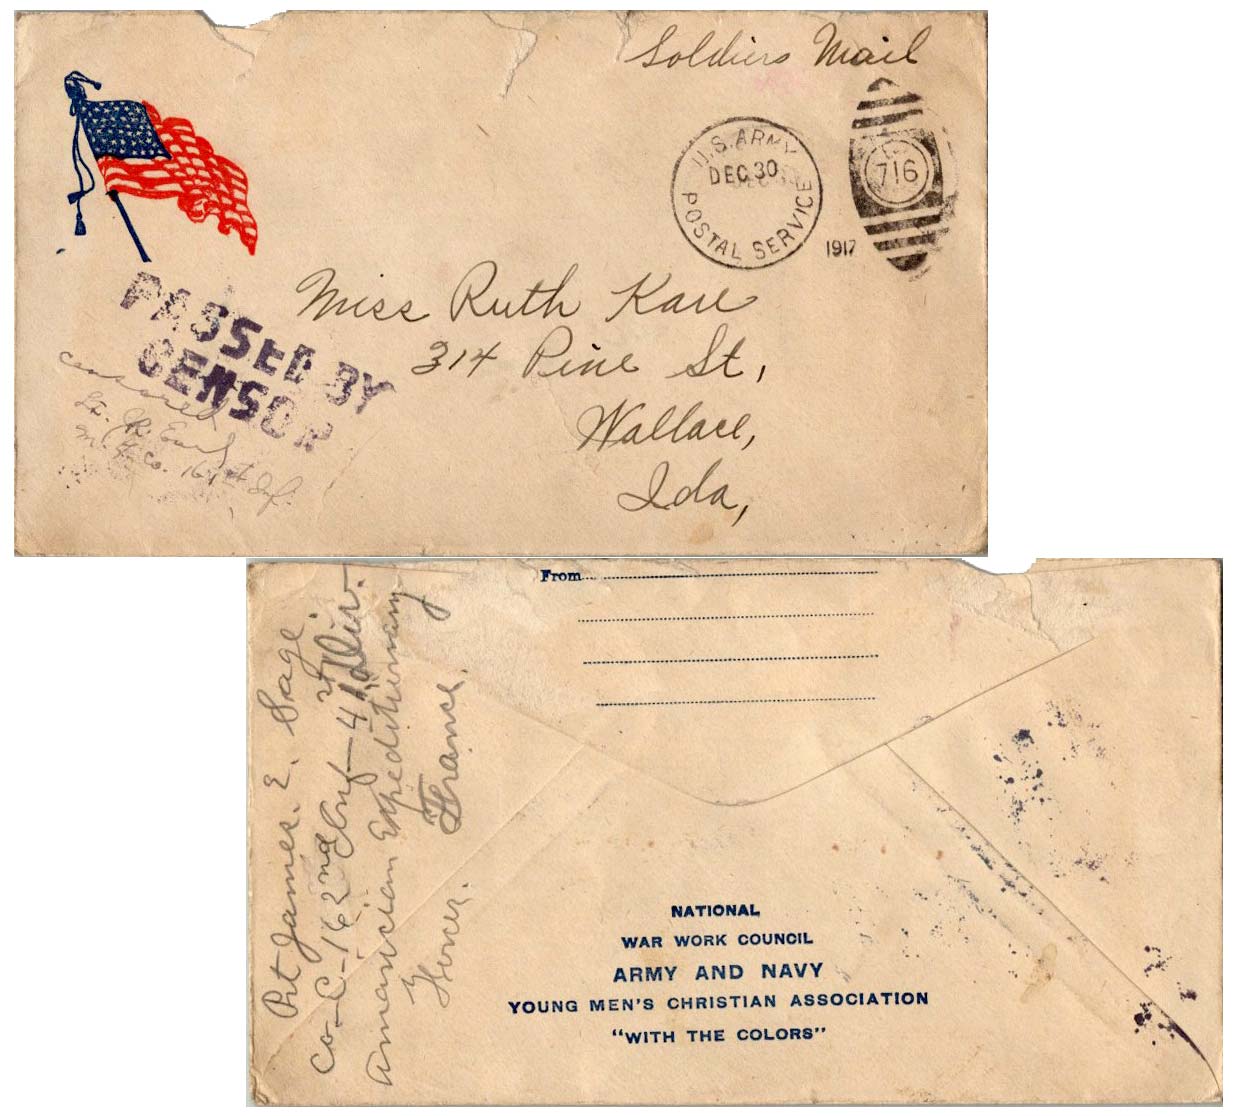 Soldiers Mail
U.S. ARMY
DEC 30
POSTAL SERVICE
1917
716
Miss Ruth Kare
314 Pine St,
Wallace,
Ida,
PASSED BY
CENSOR
censored
Lt.
Co. 161st Inf.
From
Pvt James. E. Sage.
Co-C-162nd Inf-41st Div.
American Expeditionary
Forces. France.
NATIONAL
WAR WORK COUNCIL
ARMY AND NAVY
YOUNG MEN'S CHRISTIAN ASSOCIATION
"WITH THE COLORS"